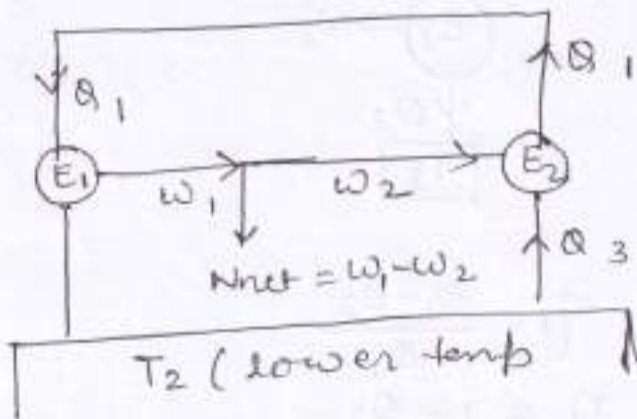 Q1
Q1
E1
W1
W2
E2
Wnet = W1-W2
Q3
T2 (lower temp